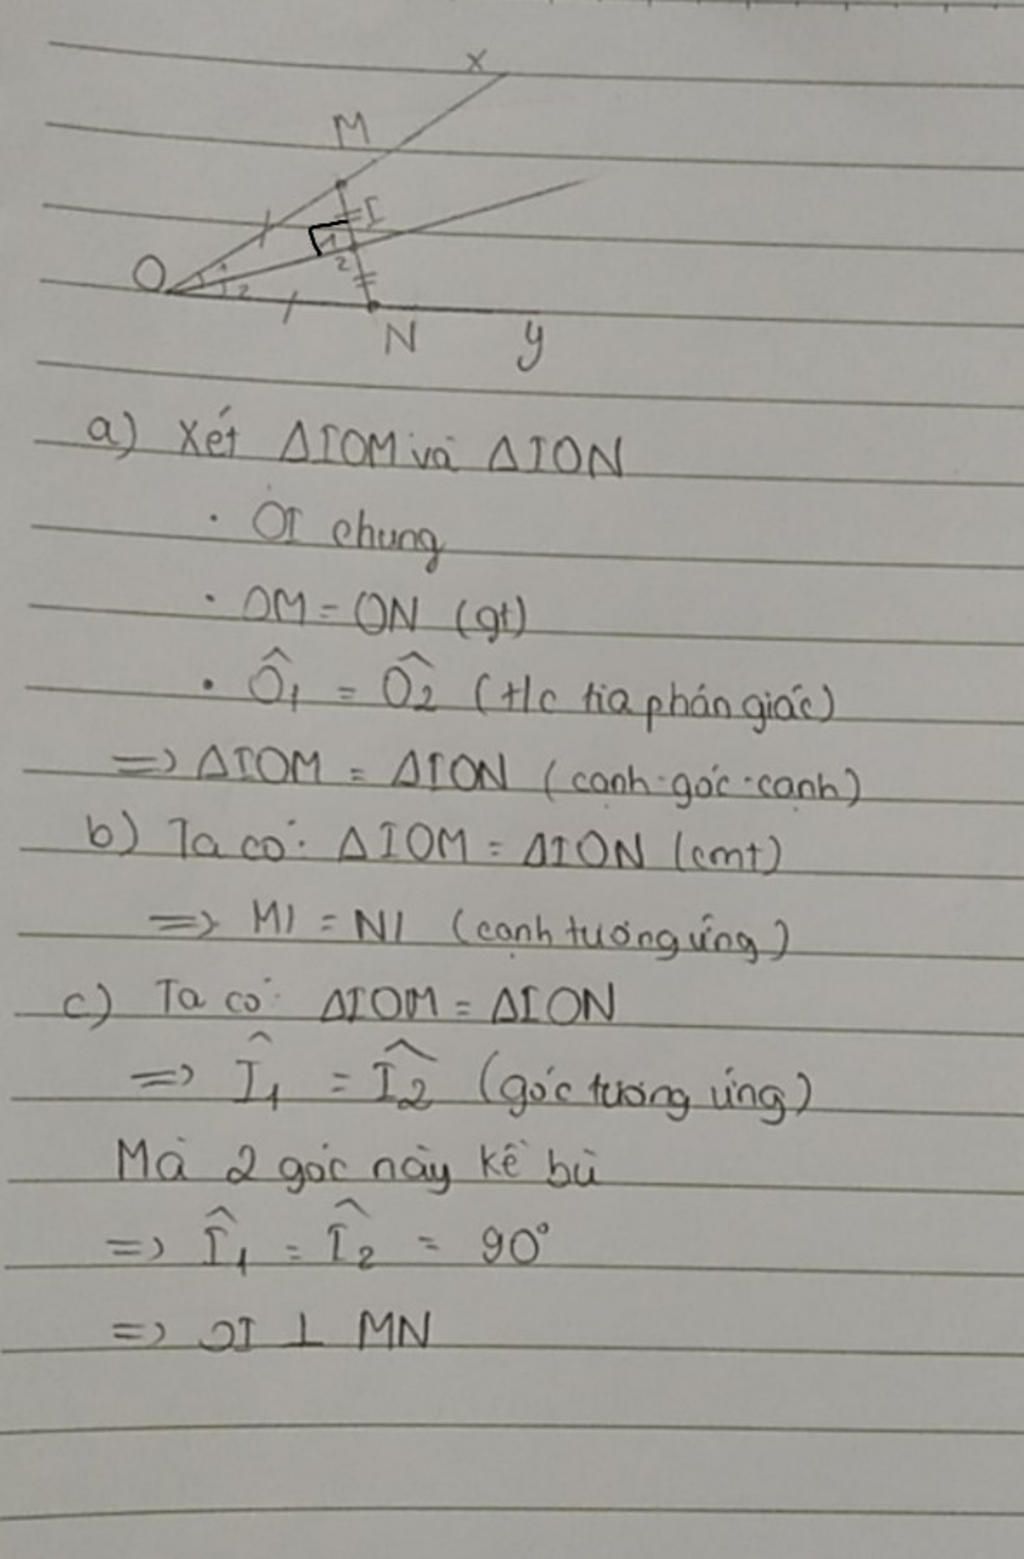 x
M
I
1
2
O
1
2
N
y
a) Xét ΔIOM và ΔION
· OI chung
· OM = ON (gt)
· Ô₁ = Ô₂ (t/c tia phân giác)
=> ΔIOM = ΔION (cạnh·góc·cạnh)
b) Ta có: ΔIOM = ΔION (cmt)
=> MI = NI (cạnh tương ứng)
c) Ta có: ΔIOM = ΔION
=> Î₁ = Î₂ (góc tương ứng)
Mà 2 góc này kề bù
=> Î₁ = Î₂ = 90°
=> OI ⊥ MN